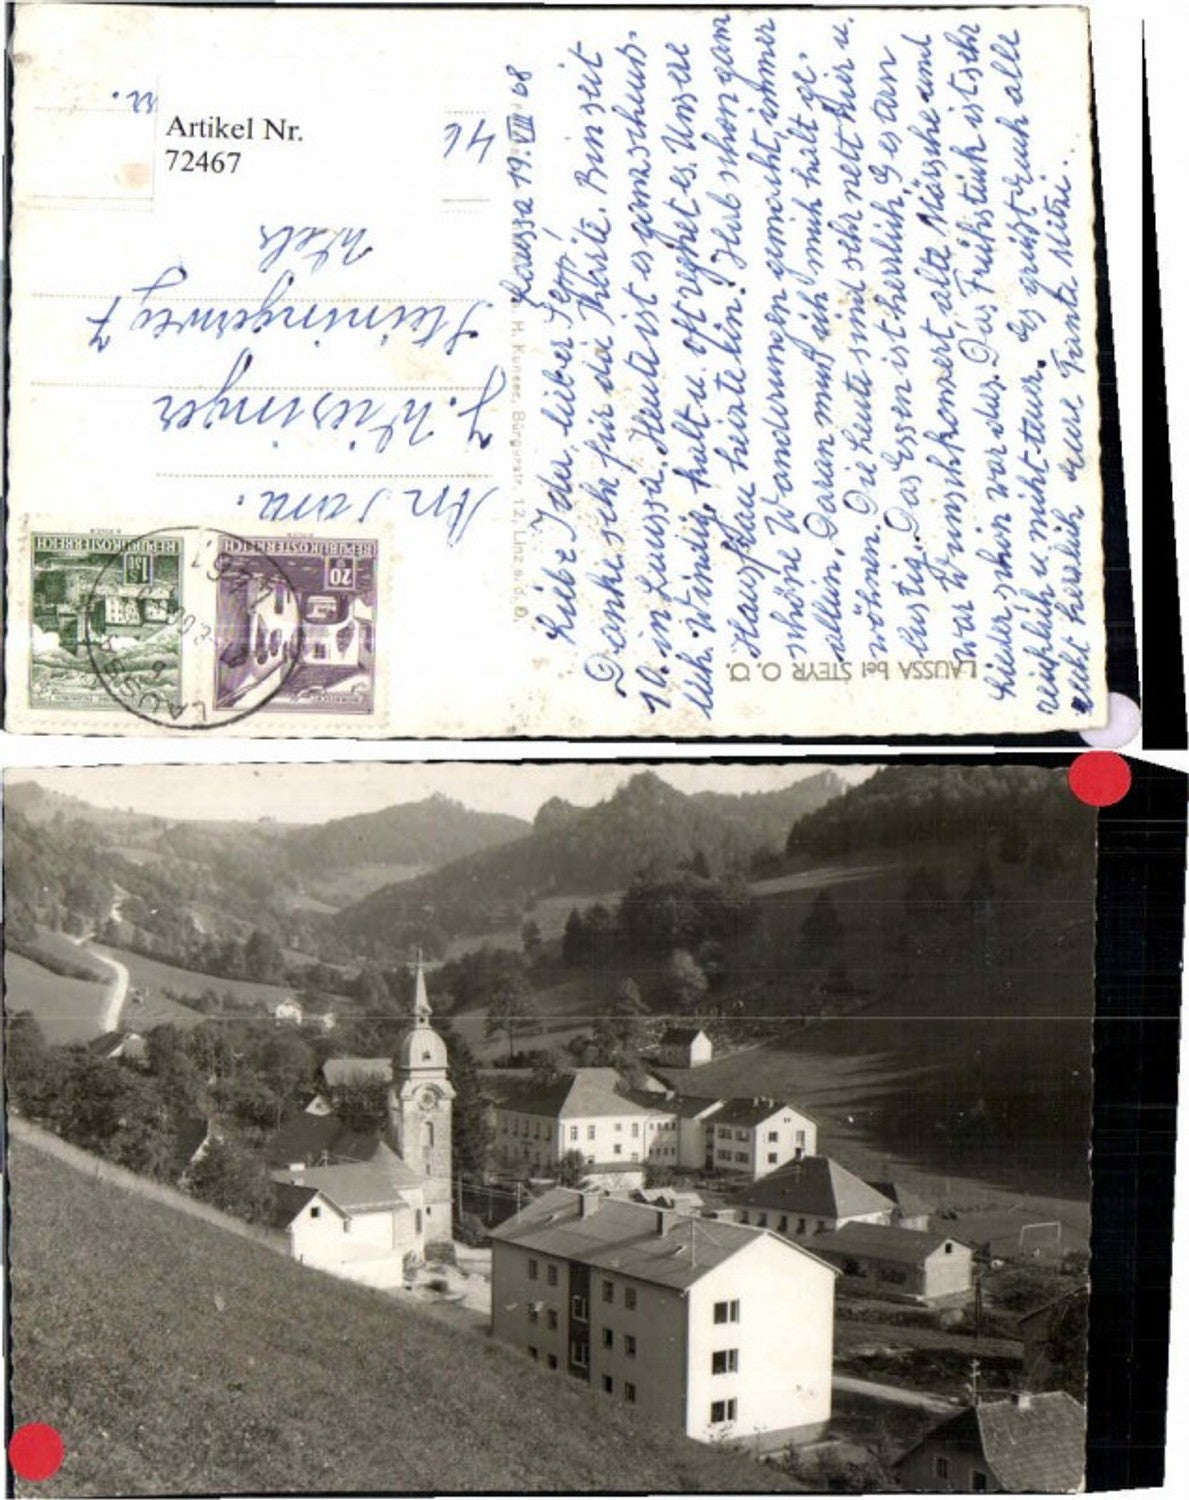 Artikel Nr.
72467
Laussa 19. VIII 68
Liebe Ida, lieber Sepp!
Danke sehr für die Karte. Bin seit
10. in Laussa. Heute ist es ganz schuss-
lich. Windig, kalt u. oft regnet es. Unsere
Hausfrau heizte ein. Hab schon ganz
schöne Wanderungen gemacht, immer
allein. Daran muß ich mich halt ge-
wöhnen. Die Leute sind sehr nett hier u.
lustig. Das Essen ist herrlich. Gestern
war Wunschkonzert, alte Märsche und
Lieder, schön war das. Das Frühstück ist sehr
reichlich u. nicht teuer. Es grüßt Euch alle
recht herzlich Eure Tante Mitzi.
An Fam.
J. Wiesinger
Steiningerweg 7
Wels
46
REPUBLIK ÖSTERREICH
1.50
S
REPUBLIK ÖSTERREICH
20
LAUSSA
H. Kunese, Bürgerstr. 12, Linz a. d. D.
LAUSSA bei STEYR O. Ö.